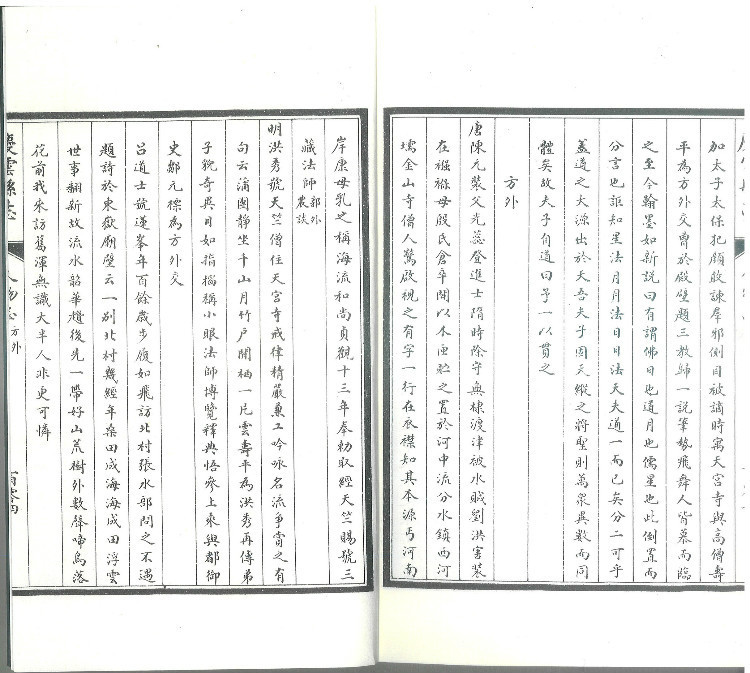 加太子太保犯顏敢諫羣邪側目被謫時寓天宮寺與高僧壽
平為方外交曾於殿壁題三教歸一說筆勢飛舞人皆慕而臨
之至今翰墨如新說曰有謂佛日也道月也儒星也此倒置而
分言也詎知星法月月法日日法天夫道一而已矣分二可乎
蓋道之大源出於天吾夫子固天縱之將聖則萬眾異數而同
體矣故夫子自道曰予一以貫之
方外
唐陳元裝父光蕊登進士隋時除守無棣渡津被水賊劉洪害裝
在襁褓母殷氏倉卒間以木匣貯之置於河中流分水鎮西河
壖金山寺僧人驚啟視之有字一行在衣襟知其本源丐河南
岸康母乳之稱海流和尚貞觀十三年奉勅取經天竺賜號三
藏法師郭外農談
明洪秀號天竺僧住天宮寺戒律精嚴兼工吟咏名流爭賞之有
句云蒲團靜坐千山月竹戶閒栖一片雲壽平為洪秀再傳弟
子貌奇異目如指搐稱小眼法師博覽釋典悟參上乘與都御
史鄒元標為方外交
呂道士號蓮峯年百餘歲步履如飛訪北村張水部問之不遇
題詩於東嶽廟壁云一別北村幾經年桑田成海海成田浮雲
世事翻新故流水韶華趱後先一帶好山荒樹外數聲啼鳥落
花前我來訪舊渾無識大半人非更可憐
慶雲縣志
人物志 方外